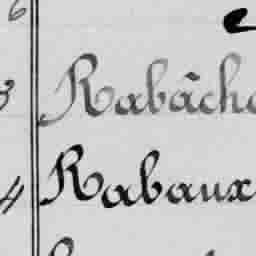 6
3 Rabâch
4 Rabaux